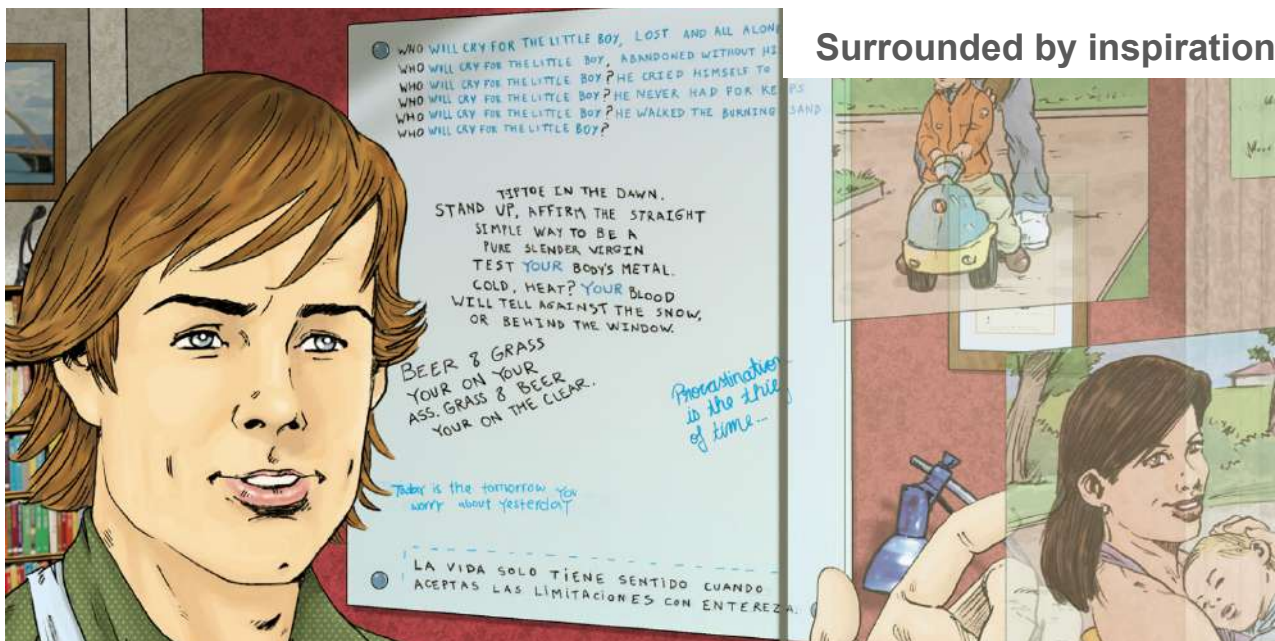 Surrounded by inspiration
WHO WILL CRY FOR THE LITTLE BOY, LOST AND ALL ALON
WHO WILL CRY FOR THE LITTLE BOY, ABANDONED WITHOUT HI
WHO WILL CRY FOR THE LITTLE BOY? HE CRIED HIMSELF TO
WHO WILL CRY FOR THE LITTLE BOY? HE NEVER HAD FOR KEEPS
WHO WILL CRY FOR THE LITTLE BOY? HE WALKED THE BURNING SAND
WHO WILL CRY FOR THE LITTLE BOY?
TIPTOE IN THE DAWN.
STAND UP, AFFIRM THE STRAIGHT
SIMPLE WAY TO BE A
PURE SLENDER VIRGIN
TEST YOUR BODY'S METAL.
COLD, HEAT? YOUR BLOOD
WILL TELL AGAINST THE SNOW,
OR BEHIND THE WINDOW.
BEER & GRASS
YOUR ON YOUR
ASS. GRASS & BEER
YOUR ON THE CLEAR.
Procastination
is the thie
of time...
Today is the tomorrow you
worry about yesterday
LA VIDA SOLO TIENE SENTIDO CUANDO
ACEPTAS LAS LIMITACIONES CON ENTEREZA.